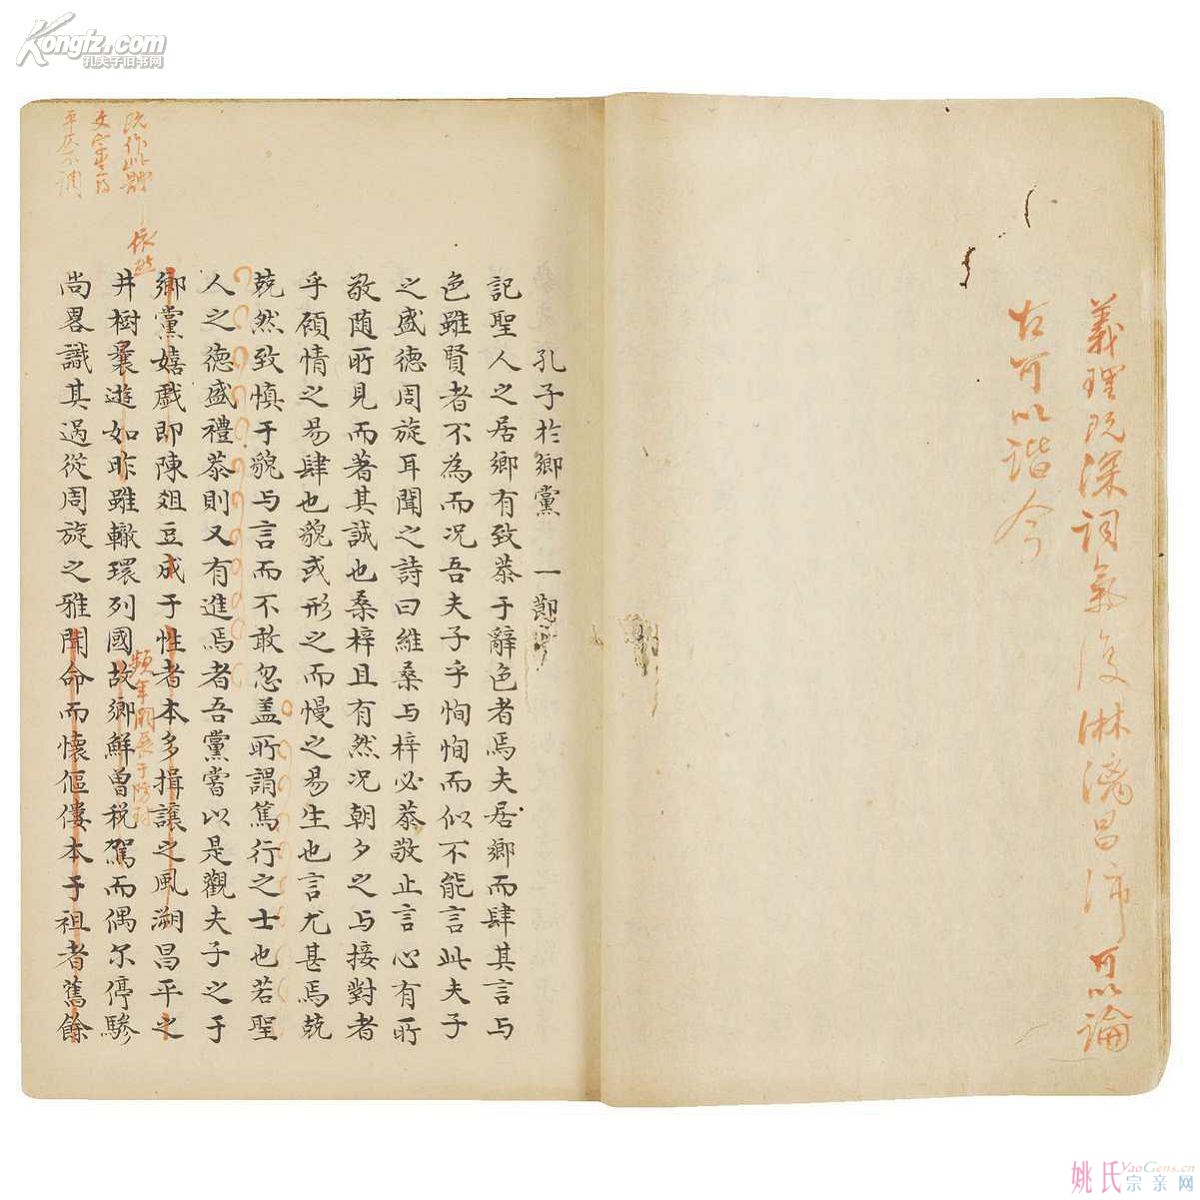 Kongfz.com
孔夫子旧书网
義理既深詞氣復淋漓昌沛可以論
古可以諧今
孔子於鄉黨一節
記聖人之居鄉有致恭于辭色者焉夫居鄉而肆其言与
色雖賢者不為而況吾夫子乎恂恂而似不能言此夫子
之盛德周旋耳聞之詩曰維桑与梓必恭敬止言心有所
敬随所見而著其誠也桑梓且有然况朝夕之与接對者
乎顧情之易肆也貌或形之而慢之易生也言尤甚焉兢
兢然致慎于貌与言而不敢忽盖所謂篤行之士也若聖
人之德盛禮恭則又有進焉者吾黨嘗以是觀夫子之于
鄉黨嬉戲即陳俎豆成于性者本多揖讓之風溯昌平之
井樹曩遊如昨雖轍環列國故鄉鮮曾税駕而偶尔停驂
尚畧識其過從周旋之雅聞命而懷傴僂本于祖者舊餘
依然
頻年周
既作此題
文字
不調
姚氏宗亲网
YaoGens.cn